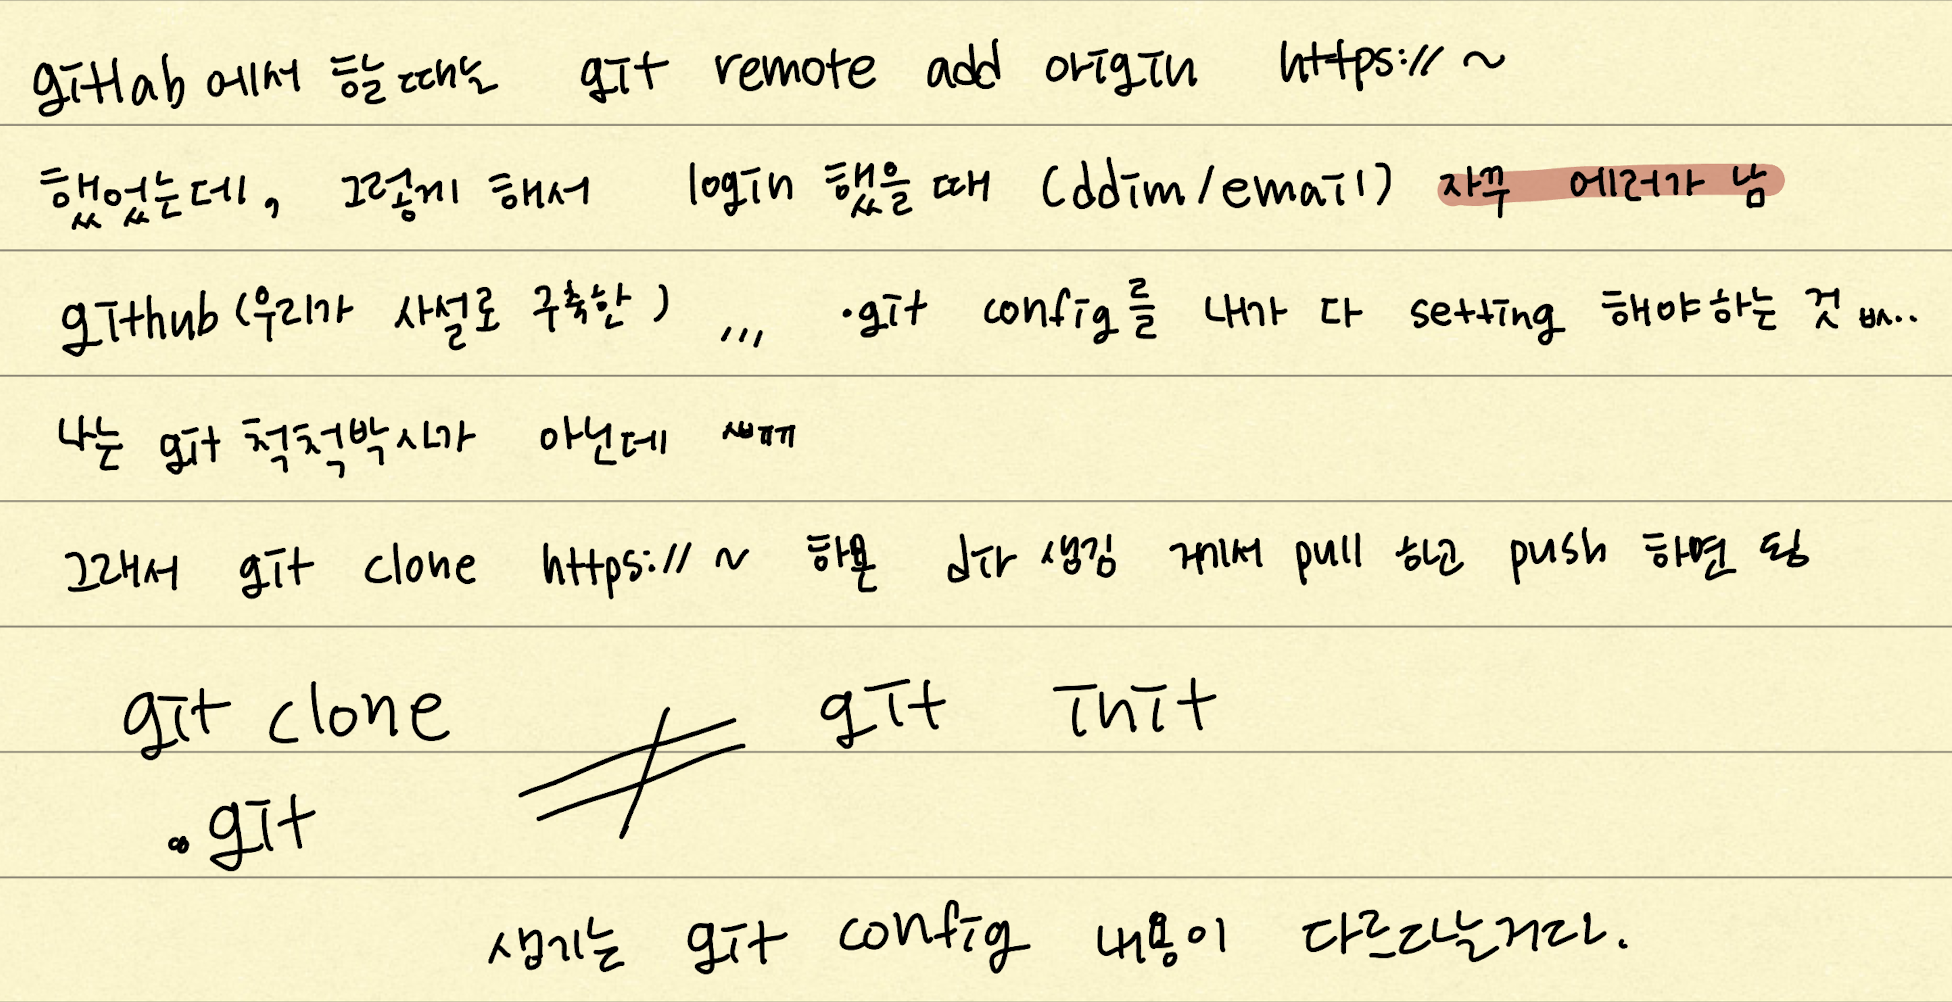 gitlab 에서 할때는 git remote add origin https:// ~
했었는데, 그렇게 해서 login 했을 때 (ddim/email) 자꾸 에러가 남
github (우리가 사설로 구축한) ,,, .git config를 내가 다 setting 해야하는 것 ㅄ..
나는 git 척척박사가 아닌데
그래서 git clone https:// ~ 하믄 dir 생김 게서 pull 하고 push 하면 됨
git clone ≠ git init
.git
생기는 git config 내용이 다르다는거다.